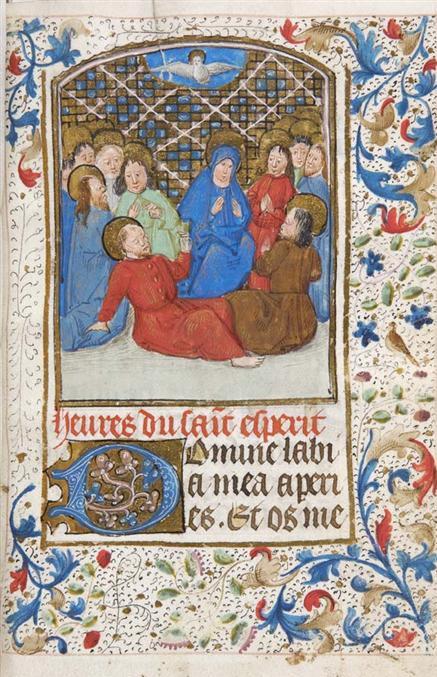 heures du saīt esperit
Domine labi
a mea aperi
es. Et os me